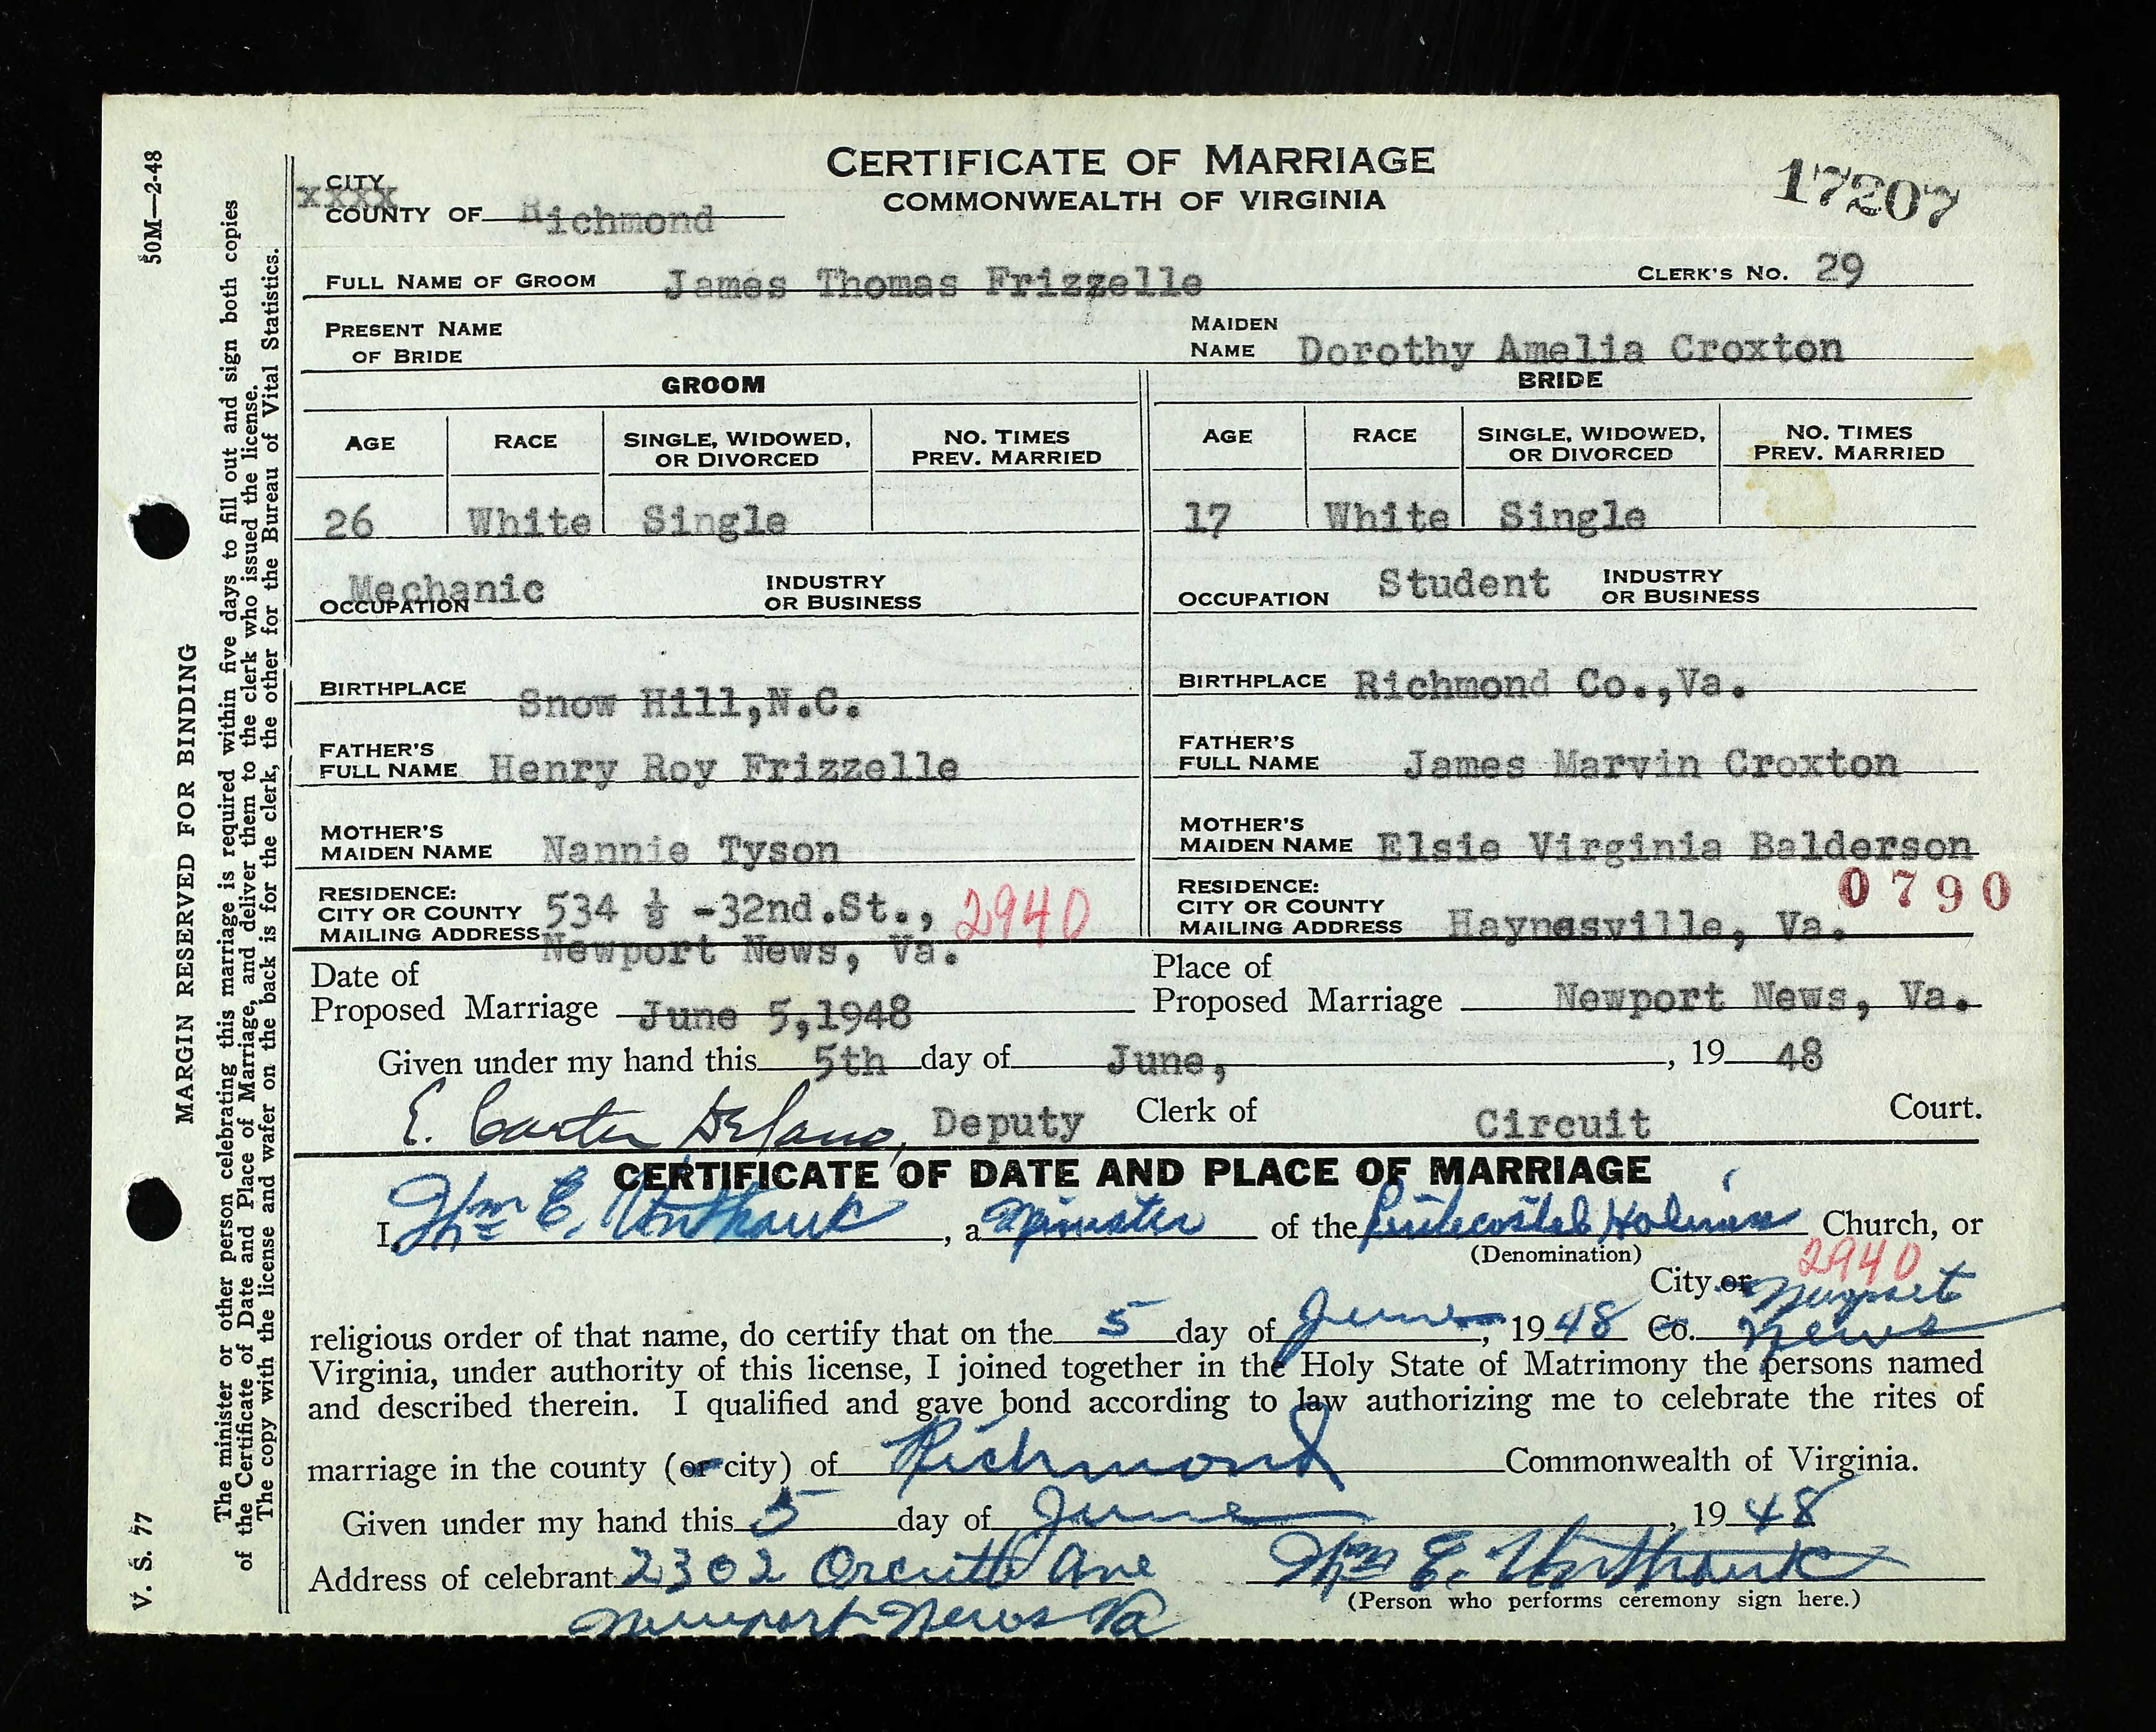 CERTIFICATE OF MARRIAGE
COMMONWEALTH OF VIRGINIA
17207
CITY
xxxx
COUNTY OF Richmond
FULL NAME OF GROOM James Thomas Frizzelle CLERK'S NO. 29
PRESENT NAME OF BRIDE MAIDEN NAME Dorothy Amelia Croxton
GROOM BRIDE
AGE RACE SINGLE, WIDOWED, OR DIVORCED NO. TIMES PREV. MARRIED AGE RACE SINGLE, WIDOWED, OR DIVORCED NO. TIMES PREV. MARRIED
26 White Single 17 White Single
OCCUPATION Mechanic INDUSTRY OR BUSINESS OCCUPATION Student INDUSTRY OR BUSINESS
BIRTHPLACE Snow Hill,N.C. BIRTHPLACE Richmond Co.,Va.
FATHER'S FULL NAME Henry Roy Frizzelle FATHER'S FULL NAME James Marvin Croxton
MOTHER'S MAIDEN NAME Nannie Tyson MOTHER'S MAIDEN NAME Elsie Virginia Balderson
RESIDENCE: CITY OR COUNTY MAILING ADDRESS 534 ½ -32nd.St., 2940 RESIDENCE: CITY OR COUNTY MAILING ADDRESS Haynesville, Va. 0790
Newport News, Va.
Date of Proposed Marriage June 5,1948 Place of Proposed Marriage Newport News, Va.
Given under my hand this 5th day of June, , 19 48
E. Carter Delano, Deputy Clerk of Circuit Court.
CERTIFICATE OF DATE AND PLACE OF MARRIAGE
I, Wm E. Unthank, a Minister of the Pentecostal Holiness Church, or
(Denomination)
2940
City or Newport
religious order of that name, do certify that on the 5 day of June, 19 48 Co. News
Virginia, under authority of this license, I joined together in the Holy State of Matrimony the persons named
and described therein. I qualified and gave bond according to law authorizing me to celebrate the rites of
marriage in the county (or city) of Richmond Commonwealth of Virginia.
Given under my hand this 5 day of June, 19 48
Address of celebrant 2302 Orcutt Ave Wm E. Unthank
(Person who performs ceremony sign here.)
Newport News Va
50M—2-48
MARGIN RESERVED FOR BINDING
V. S. 77
The minister or other person celebrating this marriage is required within five days to fill out and sign both copies
of the Certificate of Date and Place of Marriage, and deliver them to the clerk who issued the license.
The copy with the license and wafer on the back is for the clerk, the other for the Bureau of Vital Statistics.